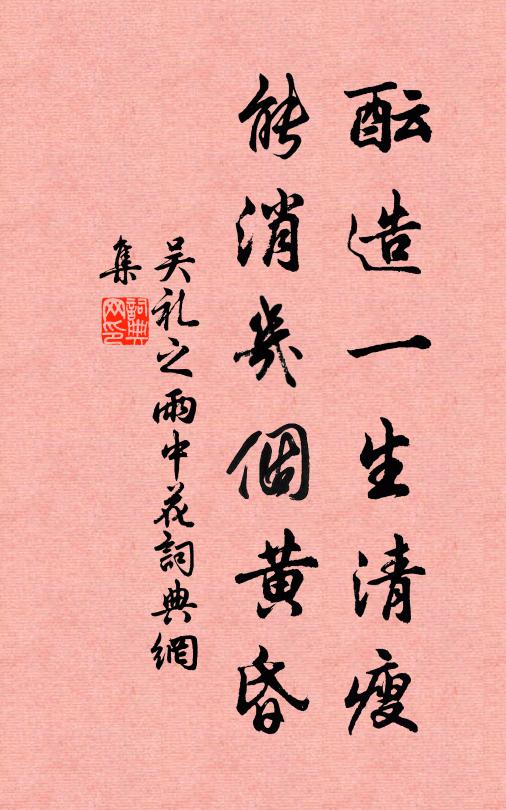 酝造一生清瘦
能消幾個黄昏
吴礼之雨中花詞典網
集
詞典
网印